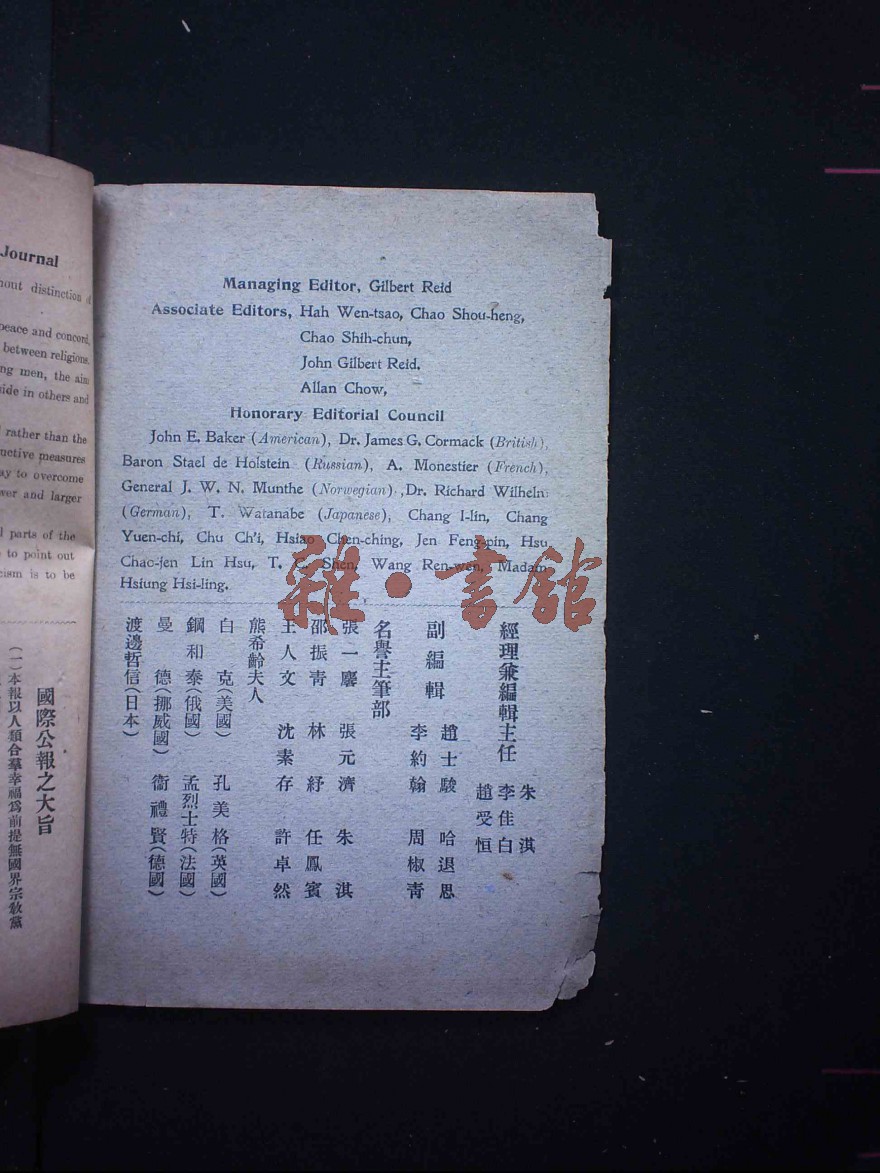 Journal
hout distinction of
peace and concord,
between religions.
ng men, the aim
side in others and
rather than the
uctive measures
ay to overcome
wer and larger
l parts of the
to point out
cism is to be
國際公報之大旨
(一)本報以人類合羣幸福爲前提無國界宗敎黨
Managing Editor, Gilbert Reid
Associate Editors, Hah Wen-tsao, Chao Shou-heng,
Chao Shih-chun,
John Gilbert Reid,
Allan Chow,
Honorary Editorial Council
John E. Baker (American), Dr. James G. Cormack (British),
Baron Stael de Holstein (Russian), A. Monestier (French),
General J. W. N. Munthe (Norwegian) ,Dr. Richard Wilhelm
(German), T. Watanabe (Japanese), Chang I-lin, Chang
Yuen-chi, Chu Ch'i, Hsiao Chen-ching, Jen Feng-pin, Hsu
Chao-jen Lin Hsu, T. C. Shen, Wang Ren-wen, Madam
Hsiung Hsi-ling.
雜·書館
經理兼編輯主任
朱淇
李佳白
趙受恒
副編輯
趙士駿 哈退思
李約翰 周椒青
名譽主筆部
張一麐 張元濟 朱淇
邵振青 林紓 任鳳賓
王人文 沈素存 許卓然
熊希齡夫人
白克(美國) 孔美格(英國)
鋼和泰(俄國) 孟烈士特(法國)
曼德(挪威國) 衞禮賢(德國)
渡邊哲信(日本)